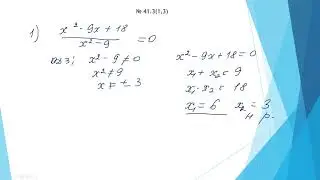 № 41.3(1,3)
1) (x² - 9x + 18)/(x² - 9) = 0
ОДЗ: x² - 9 ≠ 0
x² ≠ 9
x ≠ ± 3
x² - 9x + 18 = 0
x₁ + x₂ = 9
x₁ · x₂ = 18
x₁ = 6 x₂ = 3
н р.